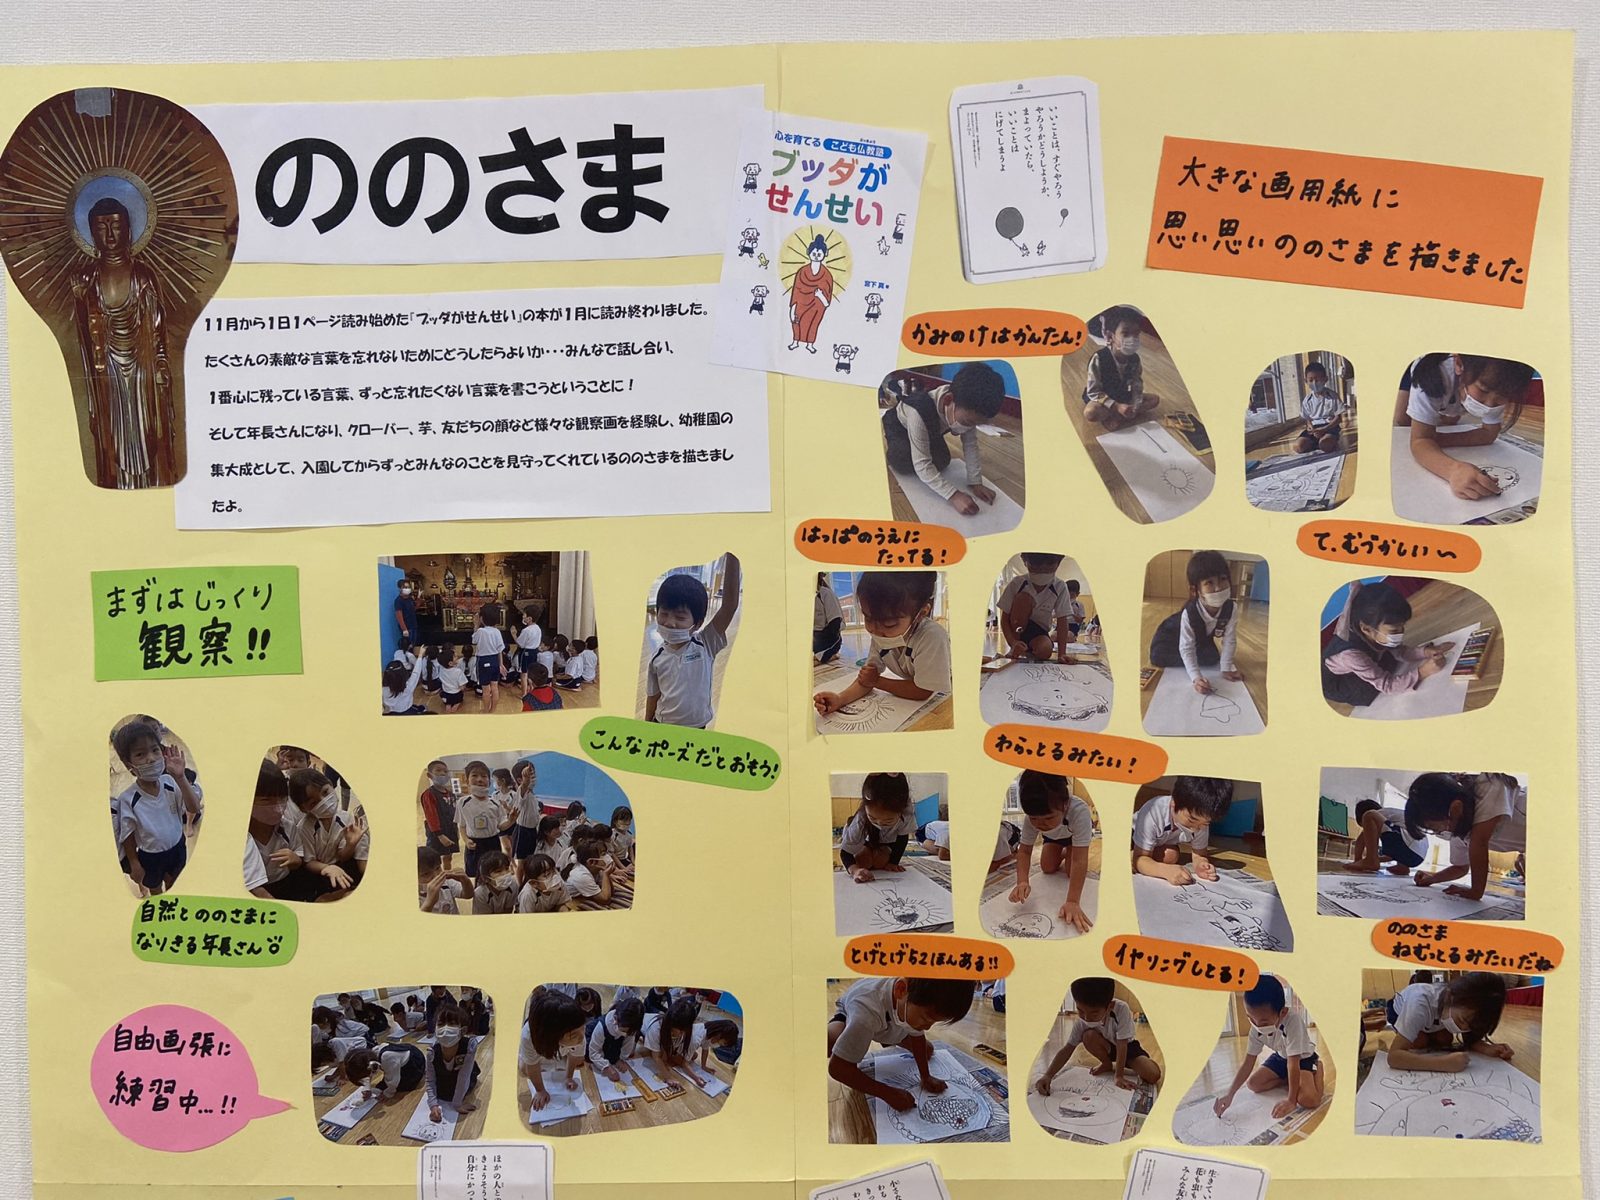 ののさま
11月から1日1ページ読み始めた『ブッダがせんせい』の本が1月に読み終わりました。
たくさんの素敵な言葉を忘れないためにどうしたらよいか・・・みんなで話し合い、
1番心に残っている言葉、ずっと忘れたくない言葉を書こうということに！
そして年長さんになり、クローバー、芋、友だちの顔など様々な観察画を経験し、幼稚園の
集大成として、入園してからずっとみんなのことを見守ってくれているののさまを描きまし
たよ。
心を育てる こども仏教塾
ブッダが
せんせい
宮下 真
いいことは、すぐやろう
やろうかどうしようか、
まよっていたら、
いいことは
にげてしまうよ
大きな画用紙に
思い思いののさまを描きました
まずはじっくり
観察!!
こんなポーズだとおもう!
自然とののさまに
なりきる年長さん
自由画張に
練習中...!!
かみのけはかんたん!
はっぱのうえに
たってる!
て、むづかしい〜
わらっとるみたい!
とげとげ52ほんある!!
イヤリングしとる!
ののさま
ねむっとるみたいだね
ほかの人と
きょうそう
自分にかつ
生きてい
花も虫も
みんな友